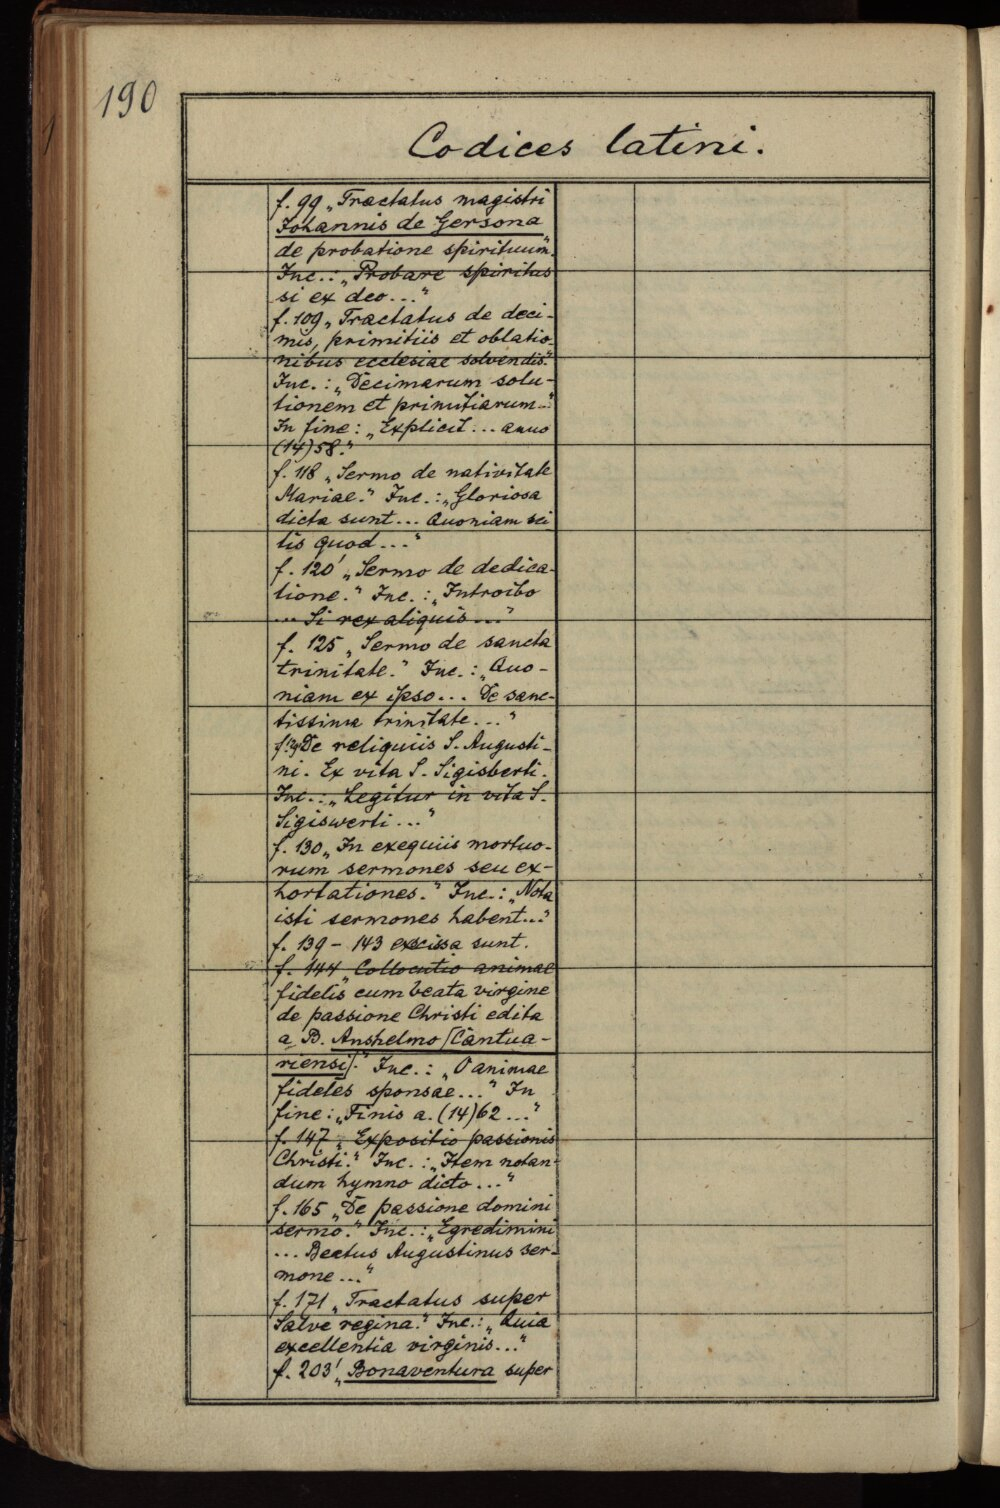 190
Codices latini.
f. 99 „Tractatus magistri
Johannis de Gersona
de probatione spirituum."
Inc.: „Probare spiritus
si ex deo..."
f. 109 „Tractatus de deci-
mis, primitiis et oblatio-
nibus ecclesiae solvendis."
Inc.: „Decimarum solu-
tionem et primitiarum..."
In fine: „Explicit... anno
(14)58."
f. 118 „Sermo de nativitate
Mariae." Inc.: „Gloriosa
dicta sunt... Quoniam sci-
tis quod..."
f. 120' „Sermo de dedica-
tione." Inc.: „Introibo
... Si rex aliquis..."
f. 125 „Sermo de sancta
trinitate." Inc.: „Quo-
niam ex ipso... De sanc-
tissima trinitate..."
De reliquiis S. Augusti-
ni. Ex vita S. Sigisberti.
Inc.: „Legitur in vita S.
Sigiswerti..."
f. 130 „In exequiis mortuo-
rum sermones seu ex-
hortationes." Inc.: „Nota
isti sermones habent..."
f. 139 - 143 excissa sunt.
f. 144 „Collocutio animae
fidelis cum beata virgine
de passione Christi edita
a B. Anshelmo [Cantua-
riensi]." Inc.: „O animae
fideles sponsae..." In
fine: „Finis a. (14)62..."
f. 147 „Expositio passionis
Christi." Inc.: „Item notan-
dum hymno dicto..."
f. 165 „De passione domini
sermo." Inc.: „Egredimini
... Beatus Augustinus ser-
mone..."
f. 171 „Tractatus super
Salve regina." Inc.: „Quia
excellentia virginis..."
f. 203' „Bonaventura super